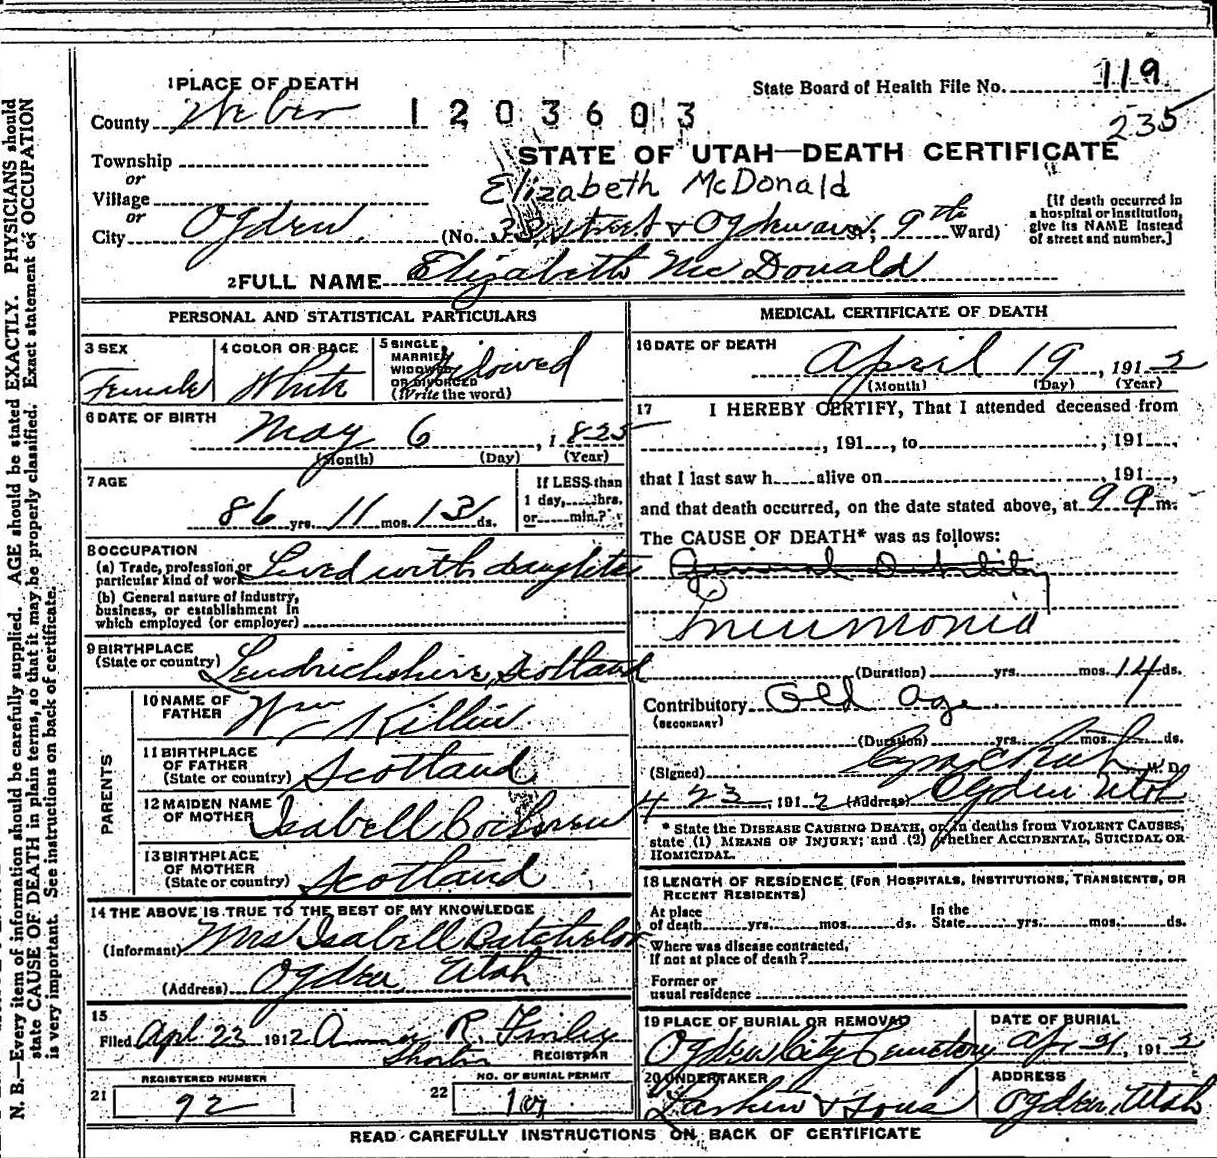 1 PLACE OF DEATH
State Board of Health File No. 119
County Weber 1203603
235
Township
STATE OF UTAH—DEATH CERTIFICATE
or
Elizabeth McDonald
Village
or
City Ogden (No. 33 street & Ogden St; 9th Ward)
[If death occurred in
a hospital or institution,
give its NAME instead
of street and number.]
2 FULL NAME Elizabeth McDonald
PERSONAL AND STATISTICAL PARTICULARS
3 SEX
Female
4 COLOR OR RACE
White
5 SINGLE
MARRIED
WIDOWED
OR DIVORCED
(Write the word)
Widowed
6 DATE OF BIRTH
May 6, 1825
(Month) (Day) (Year)
7 AGE
86 yrs. 11 mos. 13 ds.
If LESS than
1 day, hrs.
or min.?
8 OCCUPATION
(a) Trade, profession or
particular kind of work Lived with daughter
(b) General nature of industry,
business, or establishment in
which employed (or employer)
9 BIRTHPLACE
(State or country) Scotland
PARENTS
10 NAME OF
FATHER Wm Killin
11 BIRTHPLACE
OF FATHER
(State or country) Scotland
12 MAIDEN NAME
OF MOTHER Isabell Cochren
13 BIRTHPLACE
OF MOTHER
(State or country) Scotland
14 THE ABOVE IS TRUE TO THE BEST OF MY KNOWLEDGE
(Informant) Mrs Isabell Batchelor
(Address) Ogden Utah
15
Filed Apl 23 1912 R. Finley
REGISTRAR
REGISTERED NUMBER
21 92
NO. OF BURIAL PERMIT
22 101
MEDICAL CERTIFICATE OF DEATH
16 DATE OF DEATH
April 19, 1912
(Month) (Day) (Year)
17 I HEREBY CERTIFY, That I attended deceased from
, 191 , to , 191 ,
that I last saw h alive on , 191 ,
and that death occurred, on the date stated above, at 9 a m.
The CAUSE OF DEATH* was as follows:
General Debility
Pneumonia
(Duration) yrs. mos. 14 ds.
Contributory Old Age
(SECONDARY)
(Duration) yrs. mos. ds.
(Signed) M. D.
4 23, 1912 (Address) Ogden Utah
* State the DISEASE CAUSING DEATH, or, in deaths from VIOLENT CAUSES,
state (1) MEANS OF INJURY; and (2) whether ACCIDENTAL, SUICIDAL OR
HOMICIDAL.
18 LENGTH OF RESIDENCE (FOR HOSPITALS, INSTITUTIONS, TRANSIENTS, OR
RECENT RESIDENTS)
At place
of death yrs. mos. ds.
In the
State yrs. mos. ds.
Where was disease contracted,
if not at place of death?
Former or
usual residence
19 PLACE OF BURIAL OR REMOVAL
Ogden City Cemetery
DATE OF BURIAL
Apr 21, 1912
20 UNDERTAKER
Larkin & Sons
ADDRESS
Ogden, Utah
READ CAREFULLY INSTRUCTIONS ON BACK OF CERTIFICATE
N. B.—Every item of information should be carefully supplied. AGE should be stated EXACTLY. PHYSICIANS should
state CAUSE OF DEATH in plain terms, so that it may be properly classified. Exact statement of OCCUPATION
is very important. See instructions on back of certificate.